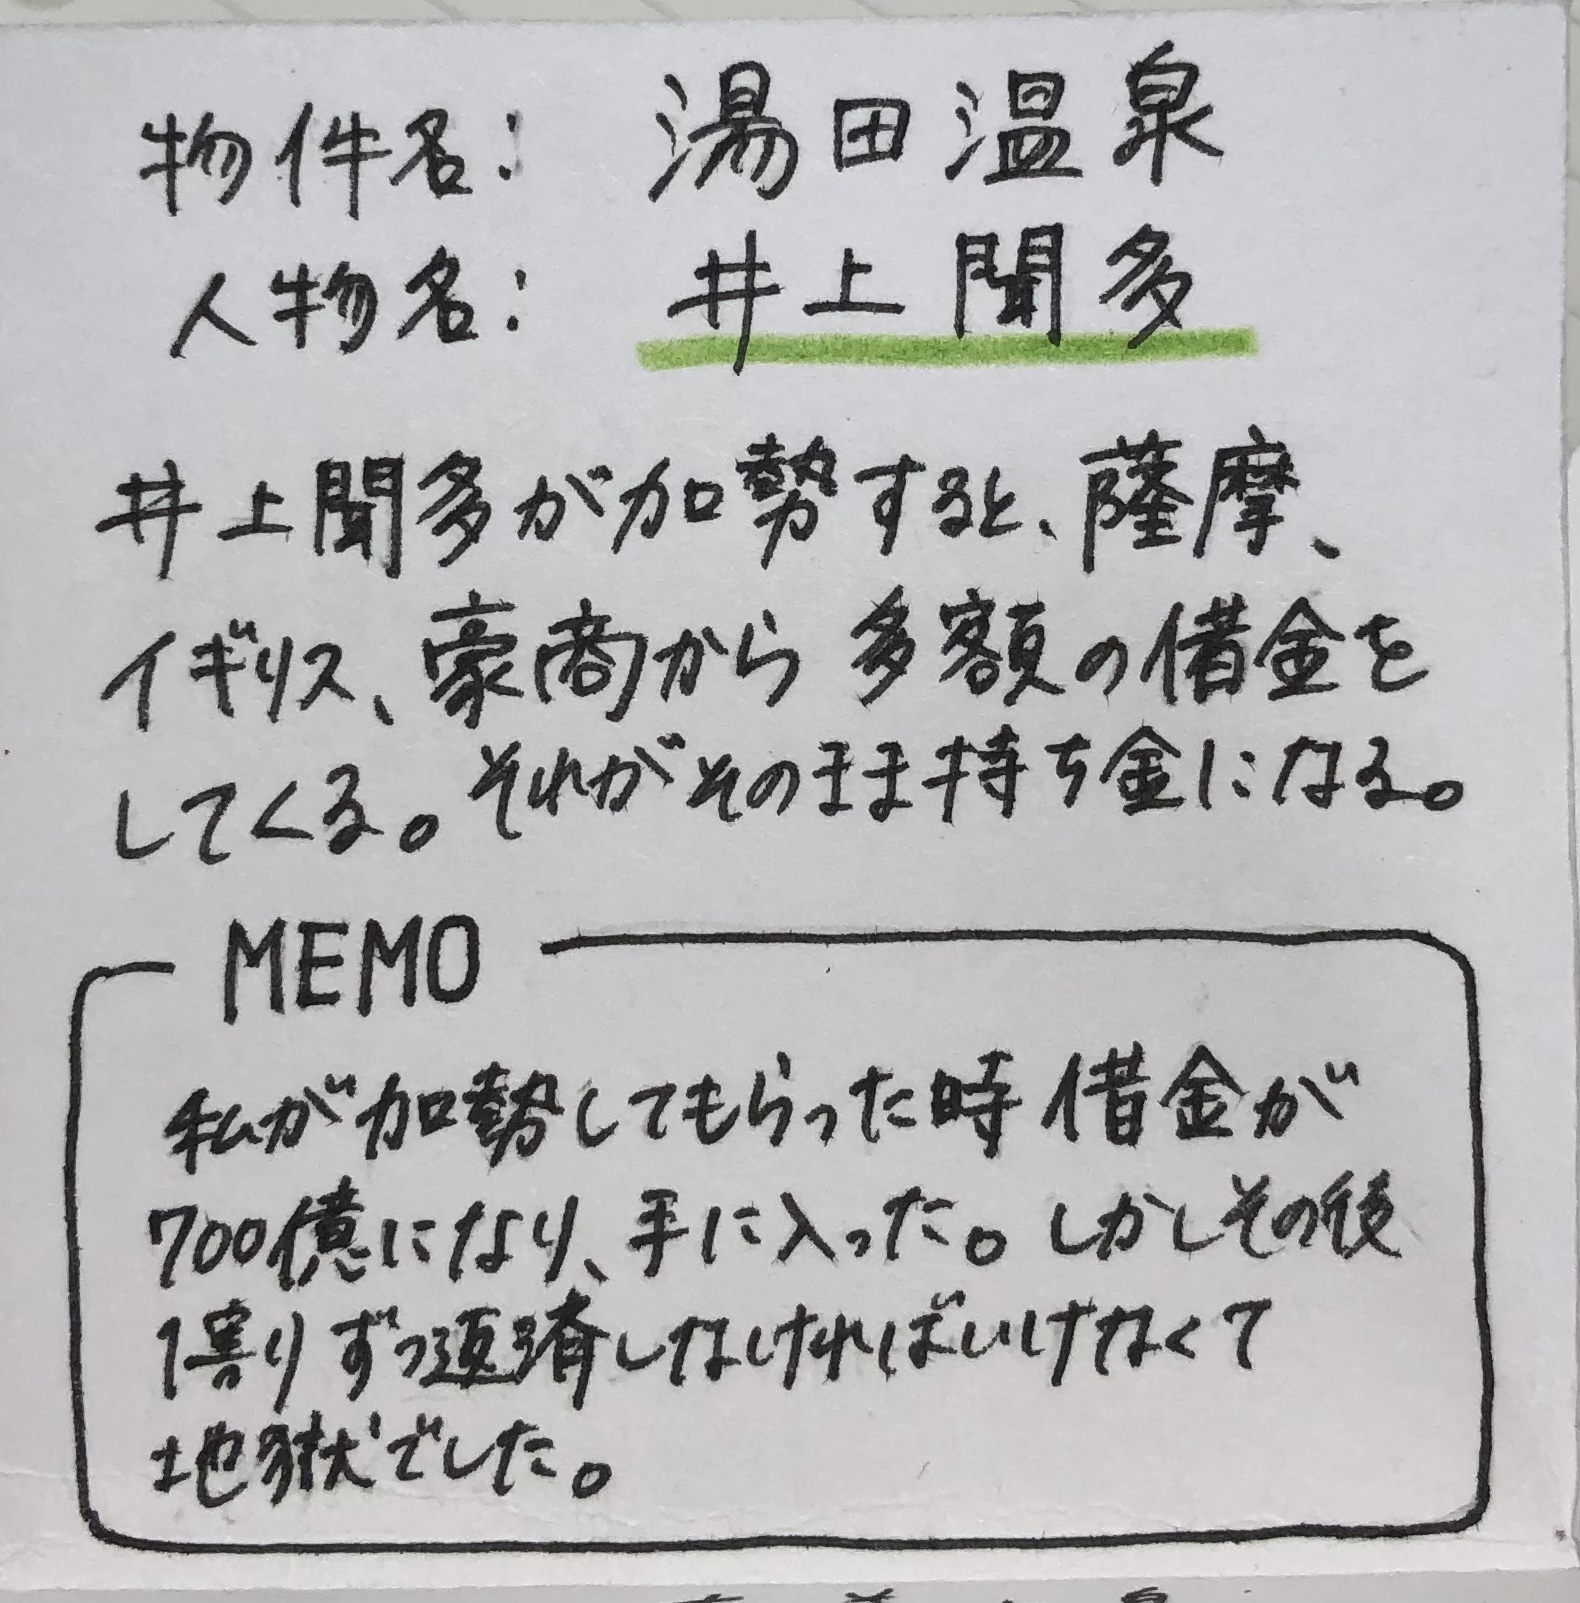 物件名: 湯田温泉
人物名: 井上聞多
井上聞多が加勢すると、薩摩、
イギリス、豪商から多額の借金を
してくる。それがそのまま持ち金になる。
MEMO
私が加勢してもらった時借金が
700億になり、手に入った。しかしその後
1割りずつ返済しなければいけなくて
地獄でした。